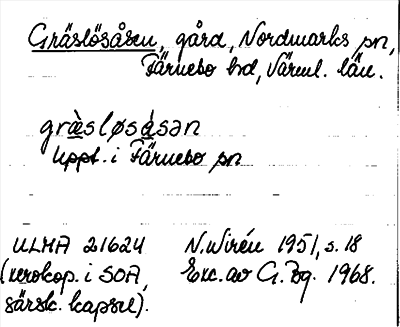 Gräslösåsen, gård, Nordmarks sn,
Färnebo hd, Värml. län.
grä̀sløså̀sən
Uppt. i Färnebo sn
ULMA 21624
(xerokop. i SOA,
särsk. kapsel).
N. Wirén 1951, s. 18
Exc. av G. Bg. 1968.